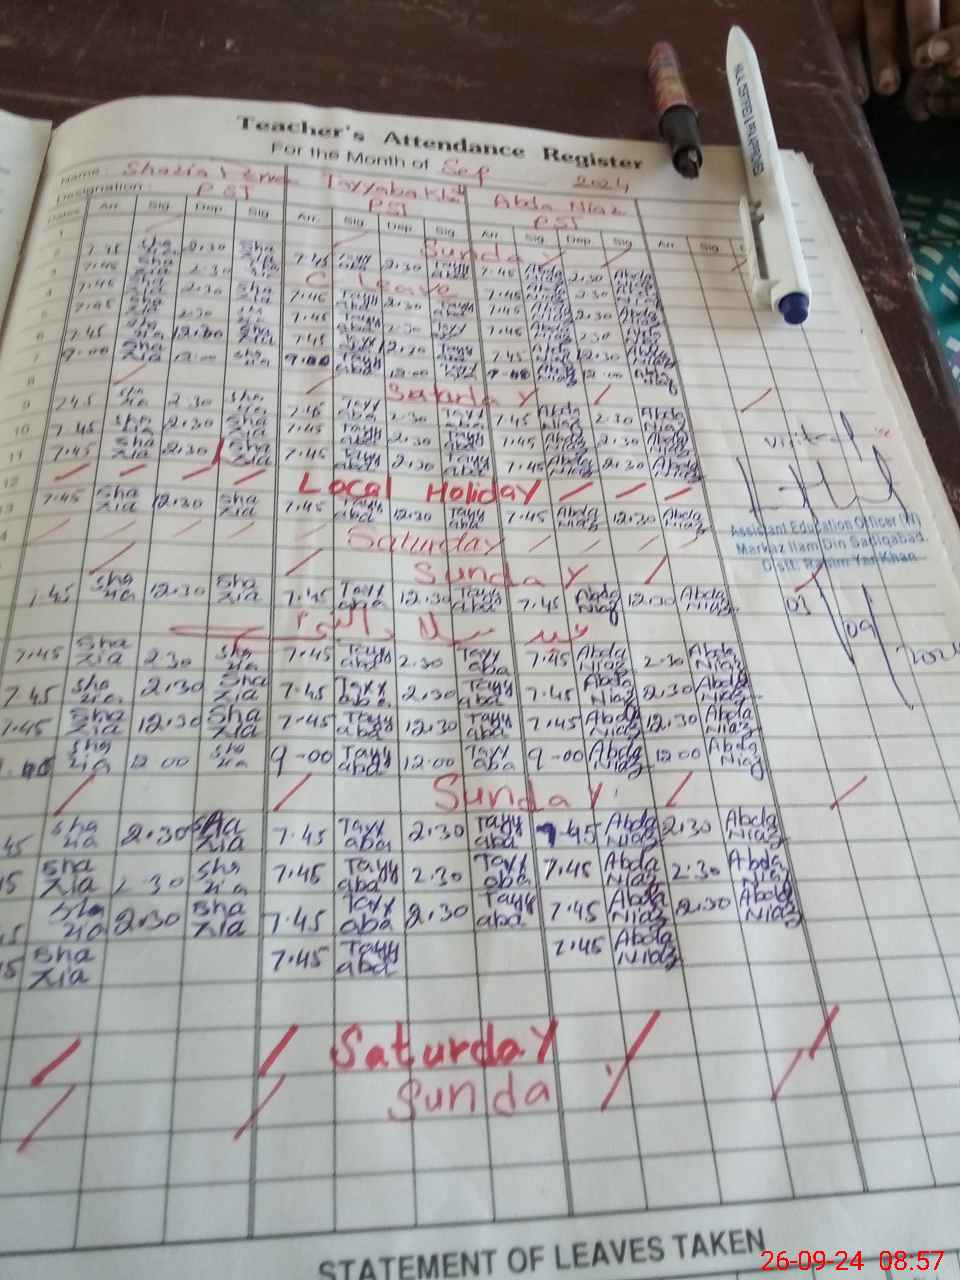 Teacher's Attendance Register
For the Month of Sep 2024
Name Shazia Tayyaba Abda Niaz
Designation PST PST PST
Dates Arr. Sig. Dep. Sig. Arr. Sig. Dep. Sig. Arr. Sig. Dep. Sig. Arr. Sig.
1 Sunday
2 7.45 Sha zia 2.30 Sha zia 7.45 Tayy aba 2.30 Tayy aba 7.45 Abda Niaz 2.30 Abda Niaz
3 7.45 Sha zia 2.30 Sha zia C Leave 7.45 Abda Niaz 2.30 Abda Niaz
4 7.45 Sha zia 2.30 Sha zia 7.45 Tayy aba 2.30 Tayy aba 7.45 Abda Niaz 2.30 Abda Niaz
5 7.45 Sha zia 2.30 Sha zia 7.45 Tayy aba 2.30 Tayy aba 7.45 Abda Niaz 2.30 Abda Niaz
6 7.45 Sha zia 12.30 Sha zia 7.45 Tayy aba 12.30 Tayy aba 7.45 Abda Niaz 12.30 Abda Niaz
7 9.00 Sha zia 12.00 Sha zia 9.00 Tayy aba 12.00 Tayy aba Abda Niaz 12.00 Abda Niaz
8 Saturday
9 7.45 Sha zia 2.30 Sha zia 7.45 Tayy aba 2.30 Tayy aba 7.45 Abda Niaz 2.30 Abda Niaz
10 7.45 Sha zia 2.30 Sha zia 7.45 Tayy aba 2.30 Tayy aba 7.45 Abda Niaz 2.30 Abda Niaz
11 7.45 Sha zia 2.30 Sha zia 7.45 Tayy aba 2.30 Tayy aba 7.45 Abda Niaz 2.30 Abda Niaz
12 Local Holiday
13 7.45 Sha zia 12.30 Sha zia 7.45 Tayy aba 12.30 Tayy aba 7.45 Abda Niaz 12.30 Abda Niaz
4 Saturday
Sunday
7.45 Sha zia 12.30 Sha zia 7.45 Tayy aba 12.30 Tayy aba 7.45 Abda Niaz 12.30 Abda Niaz
7.45 Sha zia 2.30 Sha zia 7.45 Tayy aba 2.30 Tayy aba 7.45 Abda Niaz 2.30 Abda Niaz
7.45 Sha zia 2.30 Sha zia 7.45 Tayy aba 2.30 Tayy aba 7.45 Abda Niaz 2.30 Abda Niaz
7.45 Sha zia 12.30 Sha zia 7.45 Tayy aba 12.30 Tayy aba 7.45 Abda Niaz 12.30 Abda Niaz
Sha zia 12 00 Sha zia 9-00 Tayy aba 12.00 Tayy aba 9-00 Abda Niaz 12.00 Abda Niaz
Sunday
45 Sha zia 2.30 Sha zia 7.45 Tayy aba 2.30 Tayy aba 7.45 Abda Niaz 2.30 Abda Niaz
45 Sha zia 2.30 Sha zia 7.45 Tayy aba 2.30 Tayy aba 7.45 Abda Niaz 2.30 Abda Niaz
45 Sha zia 2.30 Sha zia 7.45 Tayy aba 2.30 Tayy aba 7.45 Abda Niaz 2.30 Abda Niaz
45 Sha zia 7.45 Tayy aba 7.45 Abda Niaz
Saturday
Sunda
visited
Assistant Education Officer (W)
Markaz Ilam Din Sadiqabad
Distt. Rahim Yar Khan
09
2024
STATEMENT OF LEAVES TAKEN
26-09-24 08:57